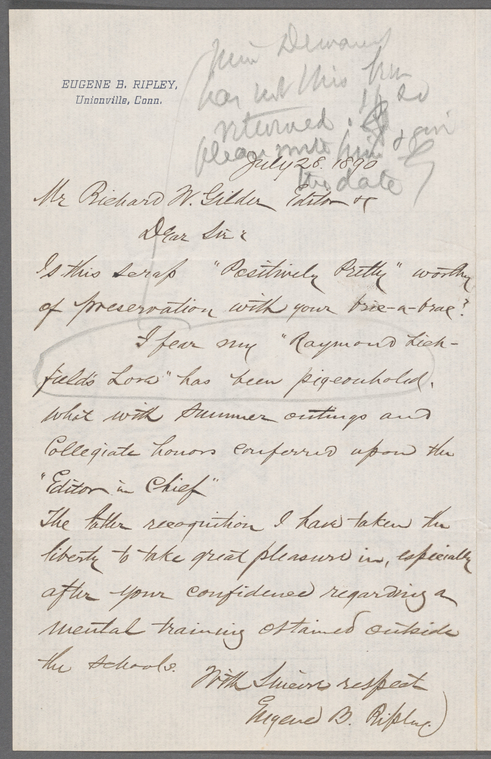 EUGENE B. RIPLEY,
Unionville, Conn.
has not this been
returned. If so
please write him & give
the date
July 28, 1890
Mr Richard W. Gilder Editor &c
Dear Sir:
Is this scrap "Positively Pretty" worthy
of preservation with your bric-a-brac?
I fear my "Raymond Lich-
field's Love" has been pigeonholed,
what with summer outings and
Collegiate honors conferred upon the
"Editor in Chief"
The latter recognition I have taken the
liberty to take great pleasure in, especially
after your confidence regarding a
mental training obtained outside
the schools.
With Sincere respect
Eugene B. Ripley